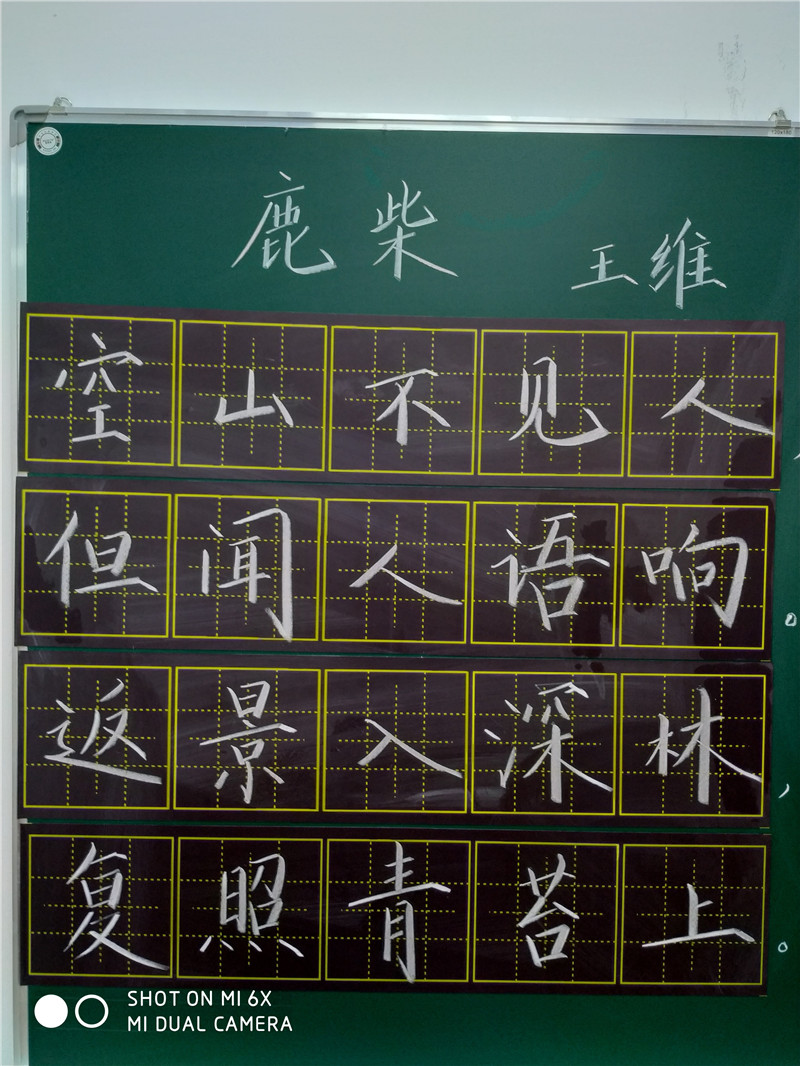 鹿柴
王维
空山不见人,
但闻人语响。
返景入深林,
复照青苔上。
SHOT ON MI 6X
MI DUAL CAMERA